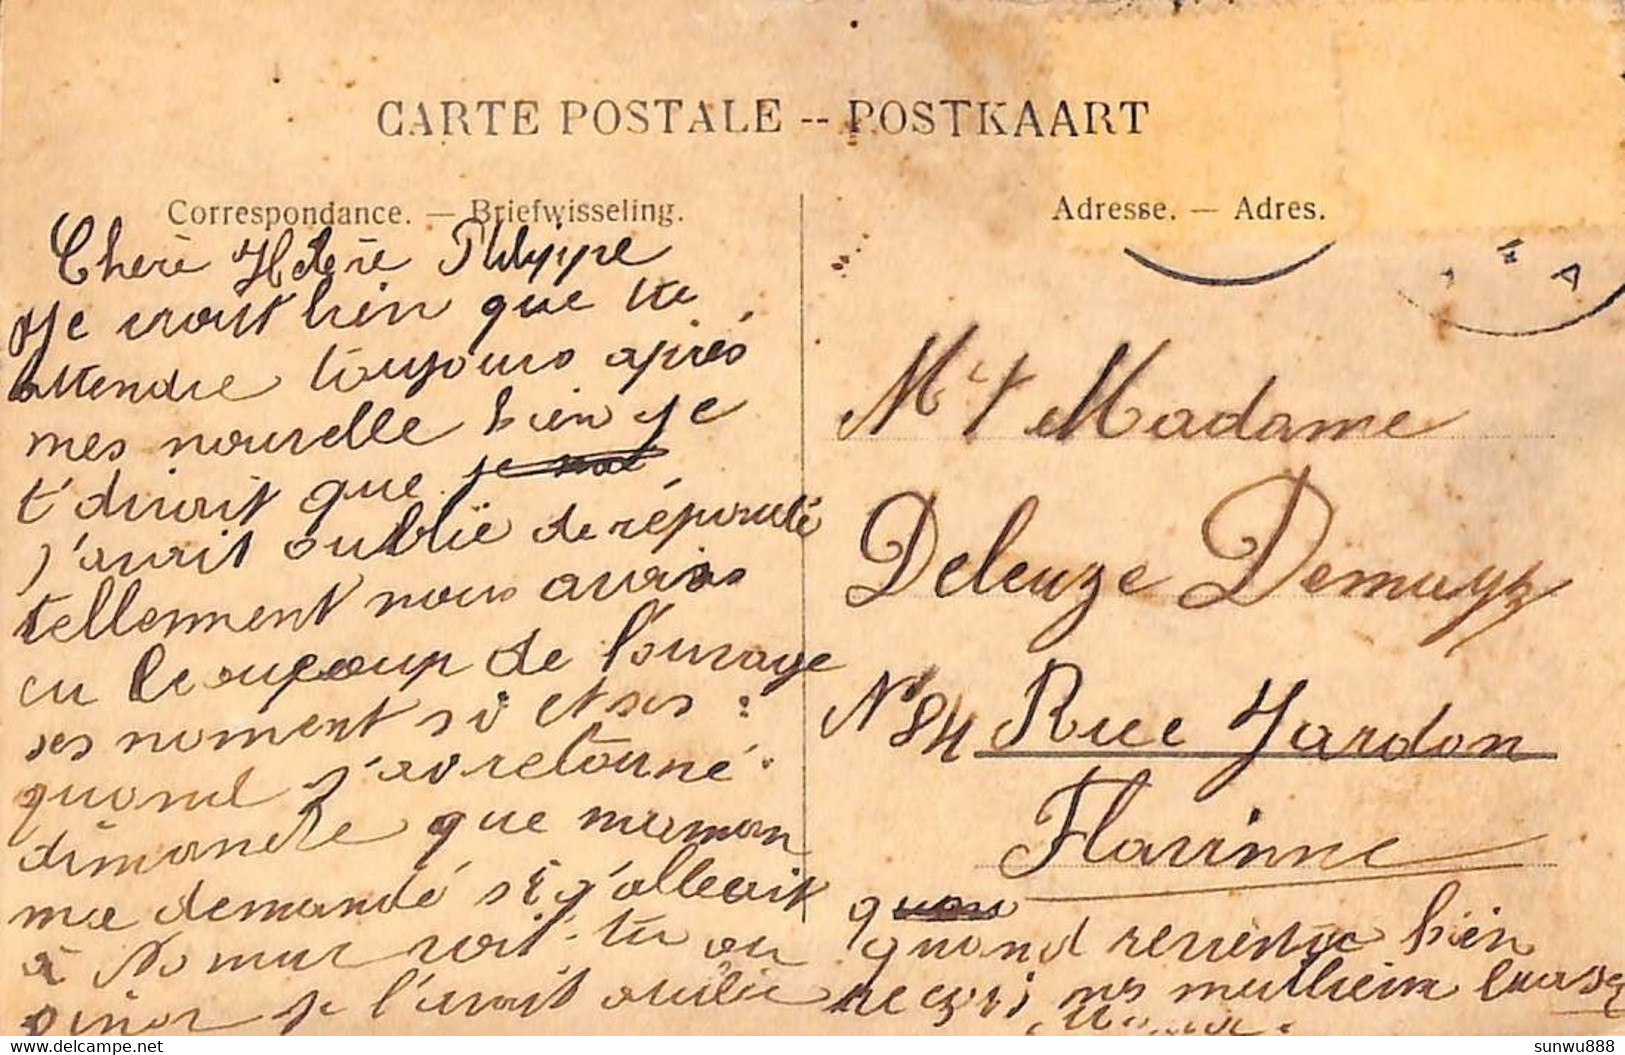 CARTE POSTALE -- POSTKAART
Correspondance. — Briefwisseling.
Adresse. — Adres.
Cherè Helère Philyppe
Je croit bien que tu
attendre toujours après
mes nourelle bien je
t'dirait que je
j'avait oublïe de répondé
tellement nous avais
eu beaucoup de l'ourage
ses noment si et ses :
quand j'ai retourné
dimanche que maman
ma demandé si j'alleait
à Namur voit-tu ou
sinon je l'avait oublie
Mr & Madame
Deleuze Demuyz
N°84 Rue Jardon
Flawinne
quand reriestu bien
recois ms meilleim baise
sunwu888